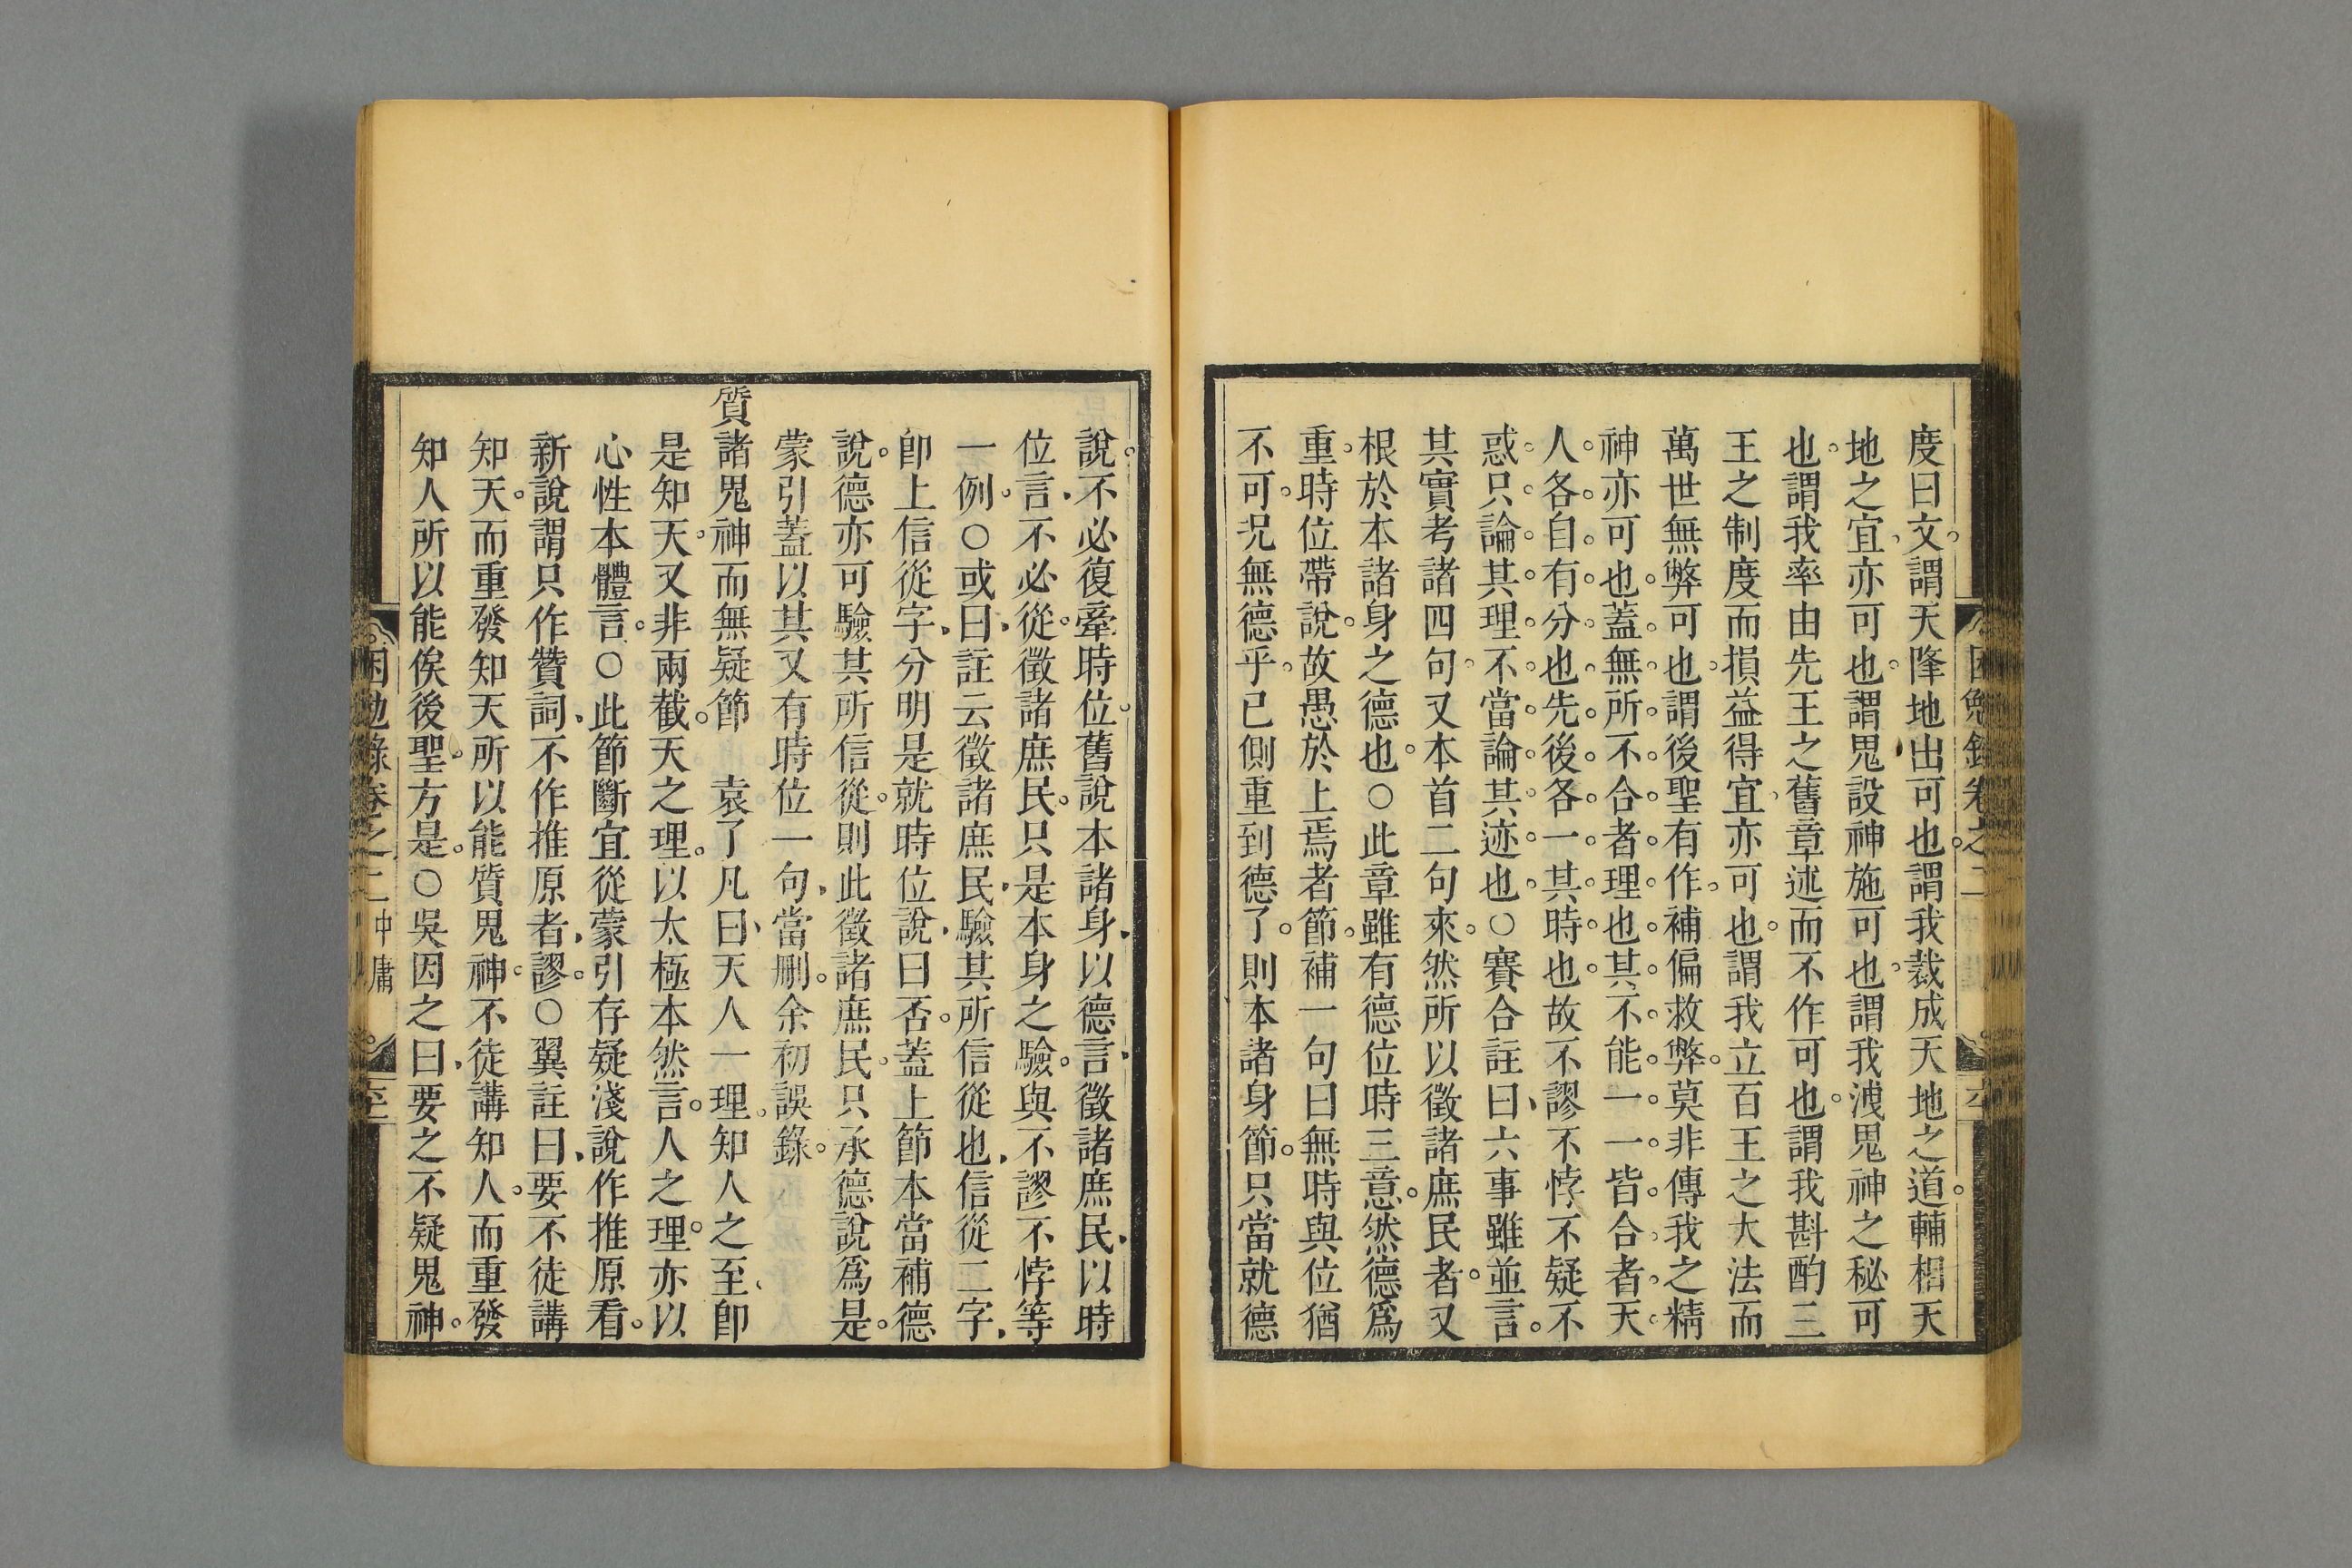 度曰文。謂天降地出可也。謂我裁成天地之道。輔相天
地之宜、亦可也。謂鬼設神施可也。謂我洩鬼神之秘可
也。謂我率由先王之舊章述而不作可也。謂我斟酌三
王之制度而損益得宜、亦可也。謂我立百王之大法而
萬世無弊可也。謂後聖有作。補偏救弊。莫非傳我之精
神亦可也。蓋無所不合者理也。其不能一一皆合者天
人各自有分也。先後各一其時也。故不謬不悖不疑不
惑只論其理。不當論其迹也○賽合註曰、六事雖並言。
其實考諸四句。又本首二句來。然所以徵諸庶民者。又
根於本諸身之德也。○此章雖有德位時三意。然德為
重。時位帶說。故愚於上焉者節。補一句曰無時與位猶
不可。况無德乎。已側重到德了。則本諸身節。只當就德
說。不必復牽時位。舊說本諸身、以德言、徵諸庶民、以時
位言、不必從。徵諸庶民。只是本身之驗。與不謬不悖等
一例。○或曰、註云徵諸庶民、驗其所信從也、信從二字、
卽上信從字、分明是就時位說、曰否。蓋上節本當補德
說。德亦可驗其所信從。則此徵諸庶民。只承德說為是。
蒙引蓋以其又有時位一句、當刪。余初誤錄。
質諸鬼神而無疑節　袁了凡曰、天人一理。知人之至、卽
是知天。又非兩截。天之理。以太極本然言。人之理。亦以
心性本體言。○此節斷宜從蒙引存疑淺說作推原看。
新說謂只作贊詞、不作推原者、謬。○翼註曰、要不徒講
知天。而重發知天所以能質鬼神。不徒講知人。而重發
知人所以能俟後聖。方是。○吳因之曰、要之不疑鬼神。
困勉錄卷之二
中庸